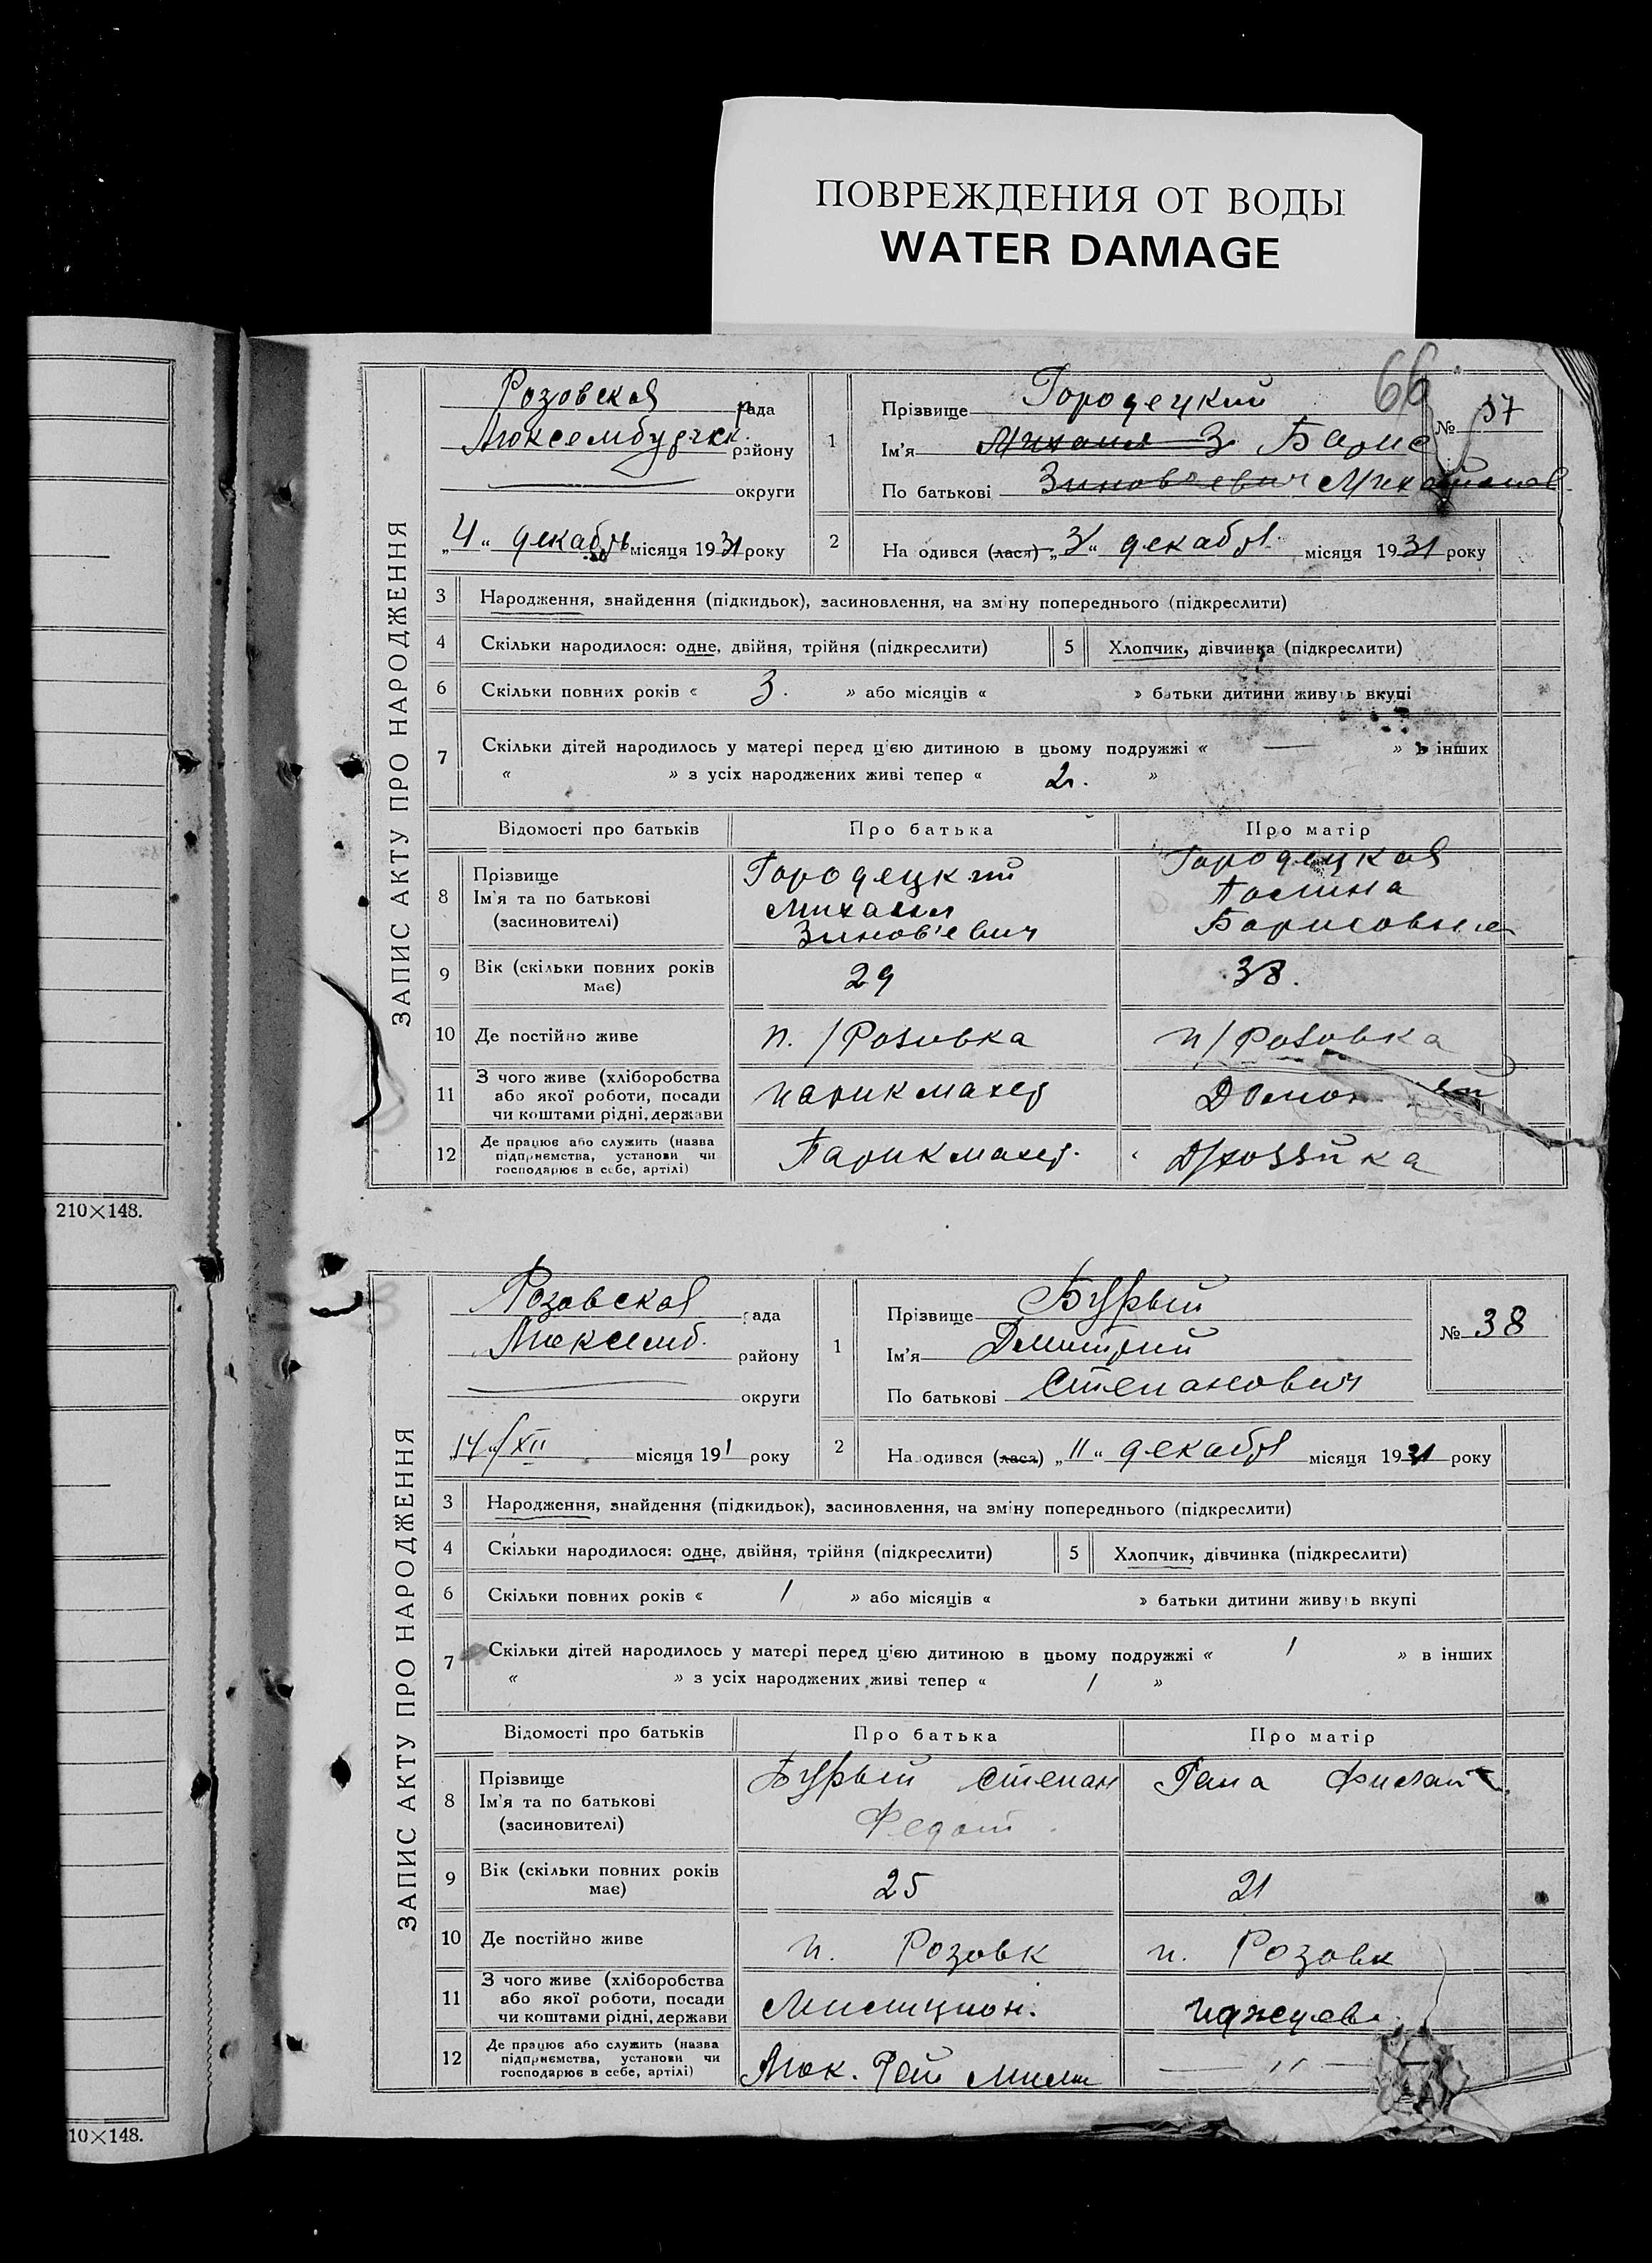 ПОВРЕЖДЕНИЯ ОТ ВОДЫ
WATER DAMAGE
66
ЗАПИС АКТУ ПРО НАРОДЖЕННЯ
Розовская рада
Люксембургск. району
округи
„4“ декабрь місяця 1931 року
1
Прізвище Городецкий
№ 37
Ім'я Михаил З Борис
По батькові Зиновьевич Михайлов
2
На одився (лася) „3“ декабря місяця 1931 року
3 Народження, знайдення (підкидьок), засиновлення, на зміну попереднього (підкреслити)
4 Скільки народилося: одне, двійня, трійня (підкреслити) 5 Хлопчик, дівчинка (підкреслити)
6 Скільки повних років « 3. » або місяців « » батьки дитини живуть вкупі
7 Скільки дітей народилось у матері перед цією дитиною в цьому подружжі « — » в інших
« » з усіх народжених живі тепер « 2. »
Відомості про батьків Про батька Про матір
8 Прізвище
Ім'я та по батькові
(засиновителі)
Городецкий
Михаил
Зинов'евич
Городецкая
Борисовна
9 Вік (скільки повних років має) 29 38.
10 Де постійно живе п. /Розовка п/Розовка
11 З чого живе (хліборобства
або якої роботи, посади
чи коштами рідні, держави
парикмахер
12 Де працює або служить (назва
підприємства, установи чи
господарює в себе, артілі)
Парикмахер.
Д/хозяйка
210×148.
ЗАПИС АКТУ ПРО НАРОДЖЕННЯ
Розовская рада
Люксемб. району
округи
„14“/XII місяця 191 року
1
Прізвище Бурый
№ 38
Ім'я Дмитрий
По батькові Степанович
2
На одився (лася) „11“ декабря місяця 1931 року
3 Народження, знайдення (підкидьок), засиновлення, на зміну попереднього (підкреслити)
4 Скільки народилося: одне, двійня, трійня (підкреслити) 5 Хлопчик, дівчинка (підкреслити)
6 Скільки повних років « 1 » або місяців « » батьки дитини живуть вкупі
7 Скільки дітей народилось у матері перед цією дитиною в цьому подружжі « 1 » в інших
« » з усіх народжених живі тепер « 1 »
Відомості про батьків Про батька Про матір
8 Прізвище
Ім'я та по батькові
(засиновителі)
Бурый Степан
Федот.
9 Вік (скільки повних років має) 25 21
10 Де постійно живе п. Розовк п. Розовк
11 З чого живе (хліборобства
або якої роботи, посади
чи коштами рідні, держави
Милицион.
иждев.
12 Де працює або служить (назва
підприємства, установи чи
господарює в себе, артілі)
Люк. Рай Мили
— " —
10×148.